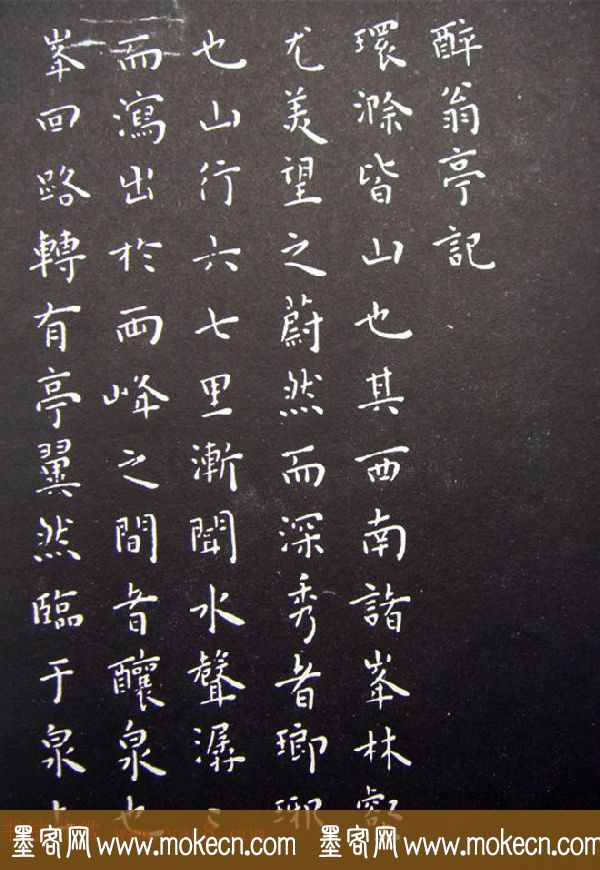 醉翁亭記
環滁皆山也其西南諸峯林壑
尤美望之蔚然而深秀者瑯琊
也山行六七里漸聞水聲潺
而瀉出於兩峰之間者釀泉也
峯回路轉有亭翼然臨于泉上
墨客网 www.mokecn.com 墨客网 www.mokecn.com